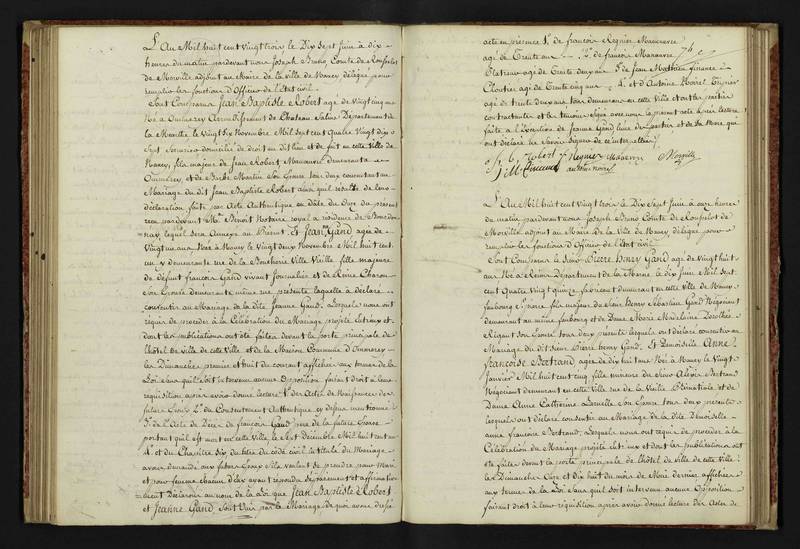 L'An Mil huit cent vingt trois, le Dix Sept Juin à dix
heures du matin pardevant nous Joseph Bruno Comte de
de Morville adjoint au Maire de la Ville de Nancy délégué pour
remplir les fonctions d'Officier de l'Etat civil
Sont Comparus Jean Baptiste Robert agé de Vingt cinq ans
Né à arrondissement de Chateau Salins Département de
la Meurthe le Vingt Six Novembre Mil Sept cent Quatre Vingt dix
Sept domicilié de droit au dit lieu et de fait en cette Ville de
Nancy, fils majeur de Jean Robert Manœuvre demeurant à
et de Barbe Martin Son Epouse tous deux consentant au
Mariage du dit Jean Baptiste Robert ainsi qu'il résulte de leur
déclaration faite par Acte Authentique en date du Onze du présent
reçu pardevant Me Benoit Notaire royal à résidence de
lequel sera Annexé au Présent Et Jeanne Gand agée de
Vingt un ans, Née à Nancy le Vingt deux Novembre Mil huit cent
un y demeurante rue de la Boucherie Ville Vieille fille majeure
de défunt françois Gand vivant Journalier et de Reine
Son Epouse demeurante même rue présente laquelle à déclaré
consentir au Mariage de la dite Jeanne Gand. Lesquels nous ont
requis de procéder à la Célébration du Mariage projeté entre eux et
dont les publications ont été faites devant la porte principale de
l'hôtel de Ville de cette Ville et de la Maison Commune d'
les Dimanches premier et huit du courant affichées aux termes de la
Loi sans qu'il soit intervenu aucune Opposition faisant droit à leur
requisition après avoir donné lecture 1°. des Actes de Naissances des
futurs Epoux 2°. du Consentement Authentique cy dessus mentionné
3°. de l'Acte de Décès de françois Gand père de la future Epouse
portant qu'il est mort en cette Ville, le Sept Décembre Mil huit cent
4°. et du Chapitre Six du titre du code civil intitulé du Mariage
avons demandé aux futurs Epoux s'ils veulent se prendre pour Mari
et pour femme chacun d'eux ayant répondu séparément et affirmative
ment déclarons au nom de la Loi que Jean Baptiste Robert
et Jeanne Gand Sont Unis par le Mariage de quoi avons dressé
acte en présence 1°. de françois Regnier Manœuvre
agé de Trente ans 2°. de françois
agé de Trente deux ans 3°. de Jean Mathieu
Cloutier agé de Trente cinq ans 4°. et d'Antoine
agé de trente deux ans tous demeurans en cette Ville et ont les parties
contractantes et les témoins Signé avec nous le présent acte après lecture
faite à l'Exception de Jeanne Gand l'une des parties et de Sa Mere qui
ont déclaré ne Savoir Signer de ce interpellées
Robert Regnier Morville
L'An Mil huit cent Vingt trois le Dix Sept Juin à onze heures
du matin pardevant nous Joseph Bruno Comte de
Morville adjoint au Maire de la Ville de Nancy délégué pour
remplir les fonctions d'Officier de l'Etat civil
Sont Comparus le Sieur Pierre Henry Gand agé de Vingt huit
ans Né à Reims Département de la Marne le dix Juin Mil Sept
cent Quatre Vingt quinze fabricant demeurant en cette Ville de Nancy
faubourg St. Pierre fils majeur du Sieur Henry Sébastien Gand Négociant
demeurant au même faubourg et de Dame Marie Madeleine Dorothée
Son Epouse tous deux présents lesquels ont déclaré consentir au
Mariage du dit Sieur Pierre Henry Gand. Et Demoiselle Anne
françoise Bertrand agée de dix huit ans Née à Nancy le Vingt
Janvier Mil huit cent cinq fille mineure du Sieur Alexis Bertrand
Négociant demeurant en cette Ville rue de la Vieille Primatiale et de
Dame Anne Catherine Son Epouse tous deux présents
lesquels ont déclaré consentir au Mariage de la dite Demoiselle
anne françoise Bertrand, Lesquels nous ont requis de procéder à la
Célébration du Mariage projeté entre eux et dont les publications ont
été faites devant la porte principale de l'hôtel de Ville de cette Ville
les Dimanches Onze et dix huit du mois de Mai dernier affichées
aux termes de la Loi Sans qu'il soit intervenu aucune Opposition
faisant droit à leur réquisition après avoir donné lecture des Actes de